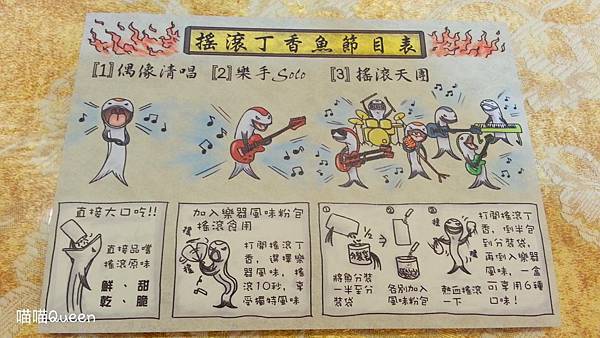 搖滾丁香魚節目表
【1】偶像清唱
【2】樂手Solo
【3】搖滾天團
直接大口吃!!
直接品嚐
搖滾原味
鮮、甜
乾、脆
加入樂器風味粉包
搖滾食用
打開搖滾丁
香,選擇樂
器風味,搖
滾10秒,享
受獨特風味
①
將魚分裝
一半至分
裝袋
②
各別加入
風味粉包
③
熱血搖滾
一下
打開搖滾丁
香,倒半包
到分裝袋,
再倒入樂器
風味,一盒
可享用6種
口味!
喵喵Queen